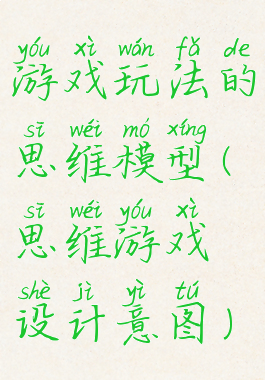 yóu xì wán fǎ de
游戏玩法的
sī wéi mó xíng
思维模型(
sī wéi yóu xì
思维游戏
shè jì yì tú
设计意图)